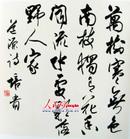 萬樹寒無色
南枝獨有花香
聞流水處影落
野人家
道源詩 培貴